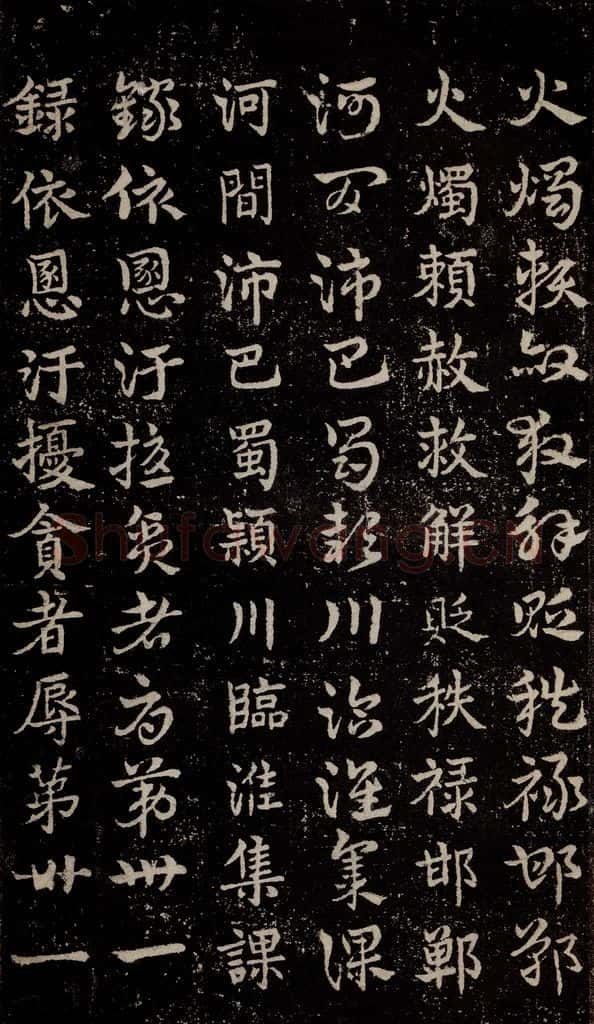 火燭賴赦救解貶秩禄邯鄲
火燭賴赦救解貶秩禄邯鄲
河間沛巴蜀潁川臨淮集課
河間沛巴蜀頴川臨淮集課
録依恩汙擾貪者辱第卅一
録依恩汙擾貪者辱第卅一
Shufawang.CN